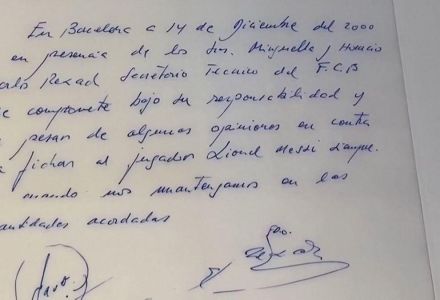 En Barcelona a 14 de Diciembre del 2000
en presencia de los Srs. Minguella y Horacio
Carles Rexach Secretario Tecnico del F.C.B
se compromete bajo su responsabilidad y
a pesar de algunas opiniones en contra
a fichar al jugador Lionel Messi siempre
cuando nos mantengamos en las
cantidades acordadas